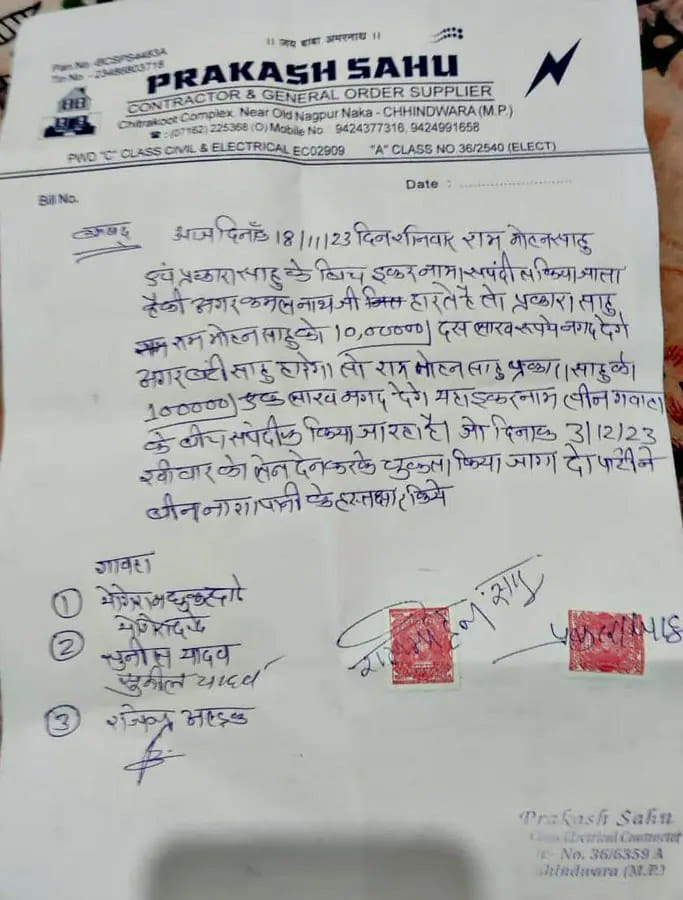 ।। जय बाबा अमरनाथ ।।
Pan.No.-BCSPS4483A
Tin No.- 23486803718
PRAKASH SAHU
CONTRACTOR & GENERAL ORDER SUPPLIER
Chitrakoot Complex, Near Old Nagpur Naka - CHHINDWARA (M.P.)
☎ : (07162) 225368 (O) Mobile No. 9424377316, 9424991658
PWD "C" CLASS CIVIL & ELECTRICAL EC02909 "A" CLASS NO.36/2540 (ELECT)
Bill No.
Date :
आज दिनाँक 18/11/23 दिन शनिवार राम मोहन साहु
एवं प्रकाश साहु के बिच इकरनामा किया जाता
है की अगर कमलनाथ जी हारते है तो प्रकाश साहु
राम मोहन साहु को 10,00000/ दस लाख रूपये नगद देगे
अगर बंटी साहु हारेगा तो राम मोहन साहु प्रकाश साहु को
100000/ एक लाख नगद देगे यहा इकरनाम तीन गवाहा
के बीच किया जा रहा है। जो दिनाक 3/12/23
रवीवार को लेन देन करके किया जागा दो पार्टी ने
बीन के हस्ताक्षर किये
गावहा
①
②
सुनील यादव
सुनील यादव
③
राम मोहन साहु
प्रकाश साहु
Prakash Sahu
Electrical Contractor
No. 36/6359 A
Chhindwara (M.P.)